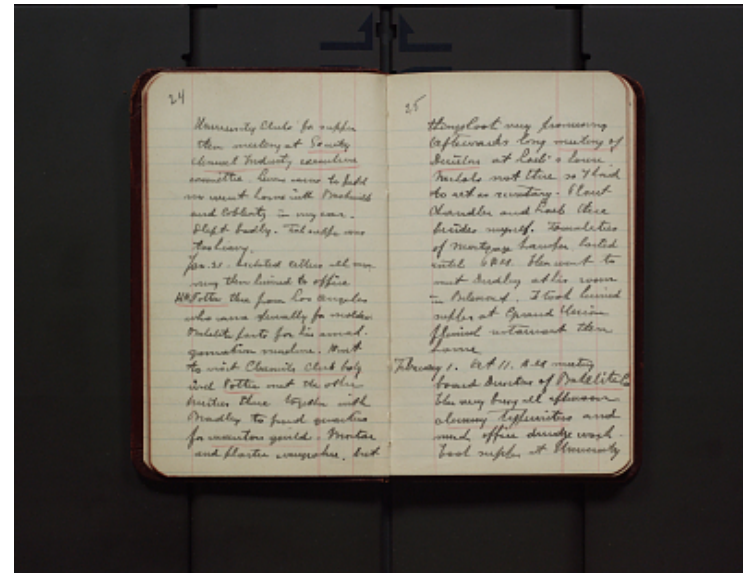 24
University Club for supper
then meeting at Society
Chemical Industry executive
committee.
we went home with
and in my car.
Slept badly. Took supper was
too heavy.
Jan. 31. Dictated letters all mor-
ning then hurried to office
Potter there from Los Angeles
who came specially for molded
Bakelite parts for his amal-
gamation machine. Went
to visit Chemists Club
and Potter met the other
there together with
Bradley to find quarters
for inventors guild. Mortar
and plaster everywhere, but
25
things look very promising
Afterwards long meeting of
Directors at Loeb's house.
not there so I had
to act as secretary.
Chandler and Loeb there
besides myself. Formalities
of Mortgage transfer lasted
until 6 P.M. Then went to
meet Dudley at his room
in Belmont. I took hurried
supper at Grand Union
restaurant then
home
February 1. At 11. A.M. meeting
board Directors of Bakelite Co
Then very busy all afternoon
and
much office drudge work.
Took supper at University